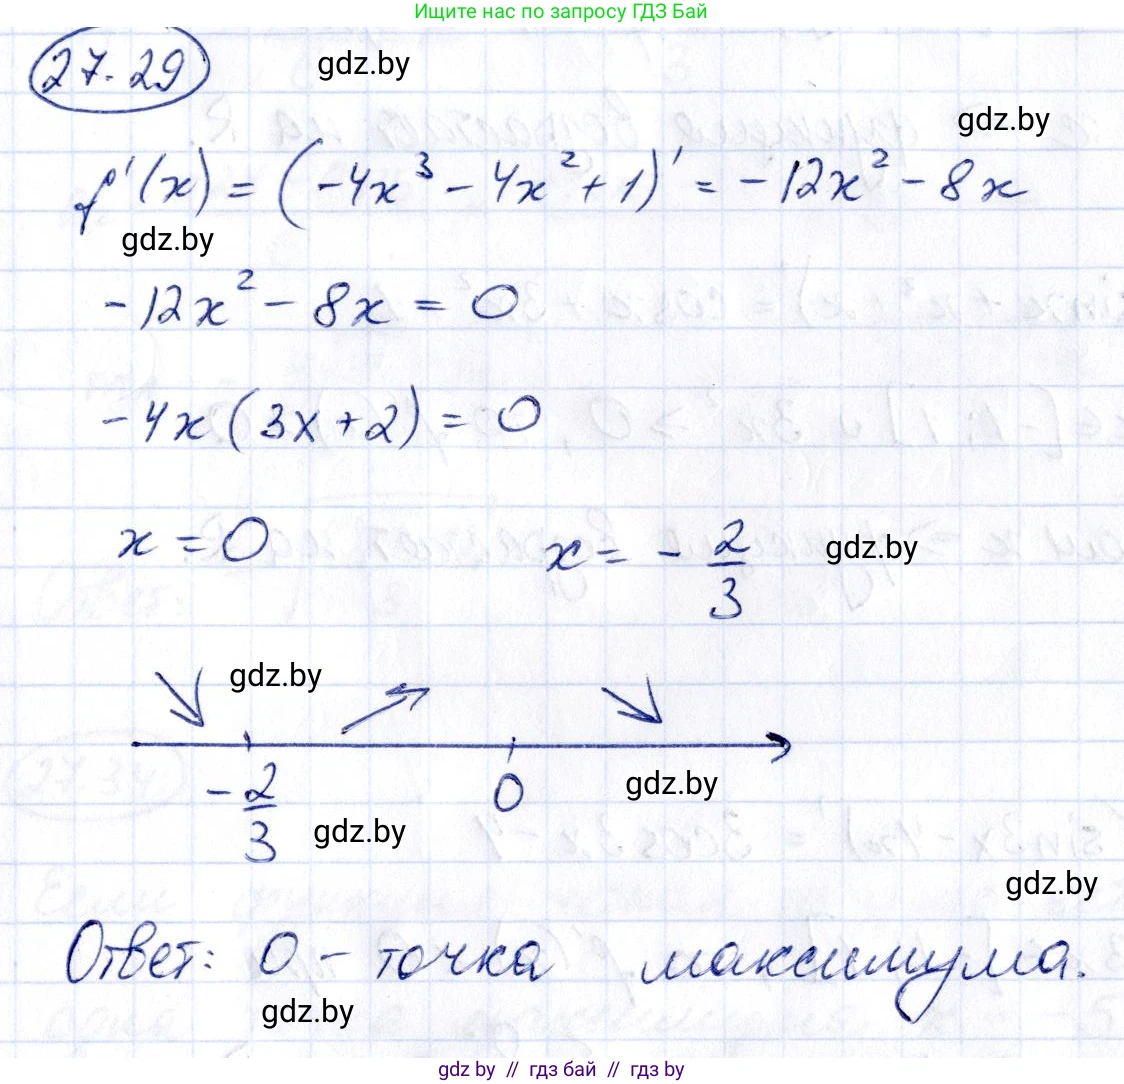 Ищите нас по запросу ГДЗ Бай
27.29
gdz.by
gdz.by
f'(x) = (-4x³ - 4x² + 1)' = -12x² - 8x
gdz.by
-12x² - 8x = 0
-4x(3x+2) = 0
x = 0 x = -2/3
gdz.by
gdz.by
-2/3 0
gdz.by
gdz.by
gdz.by
Ответ: 0 - точка максимума.
gdz.by
gdz by // гдз бай // гдз by